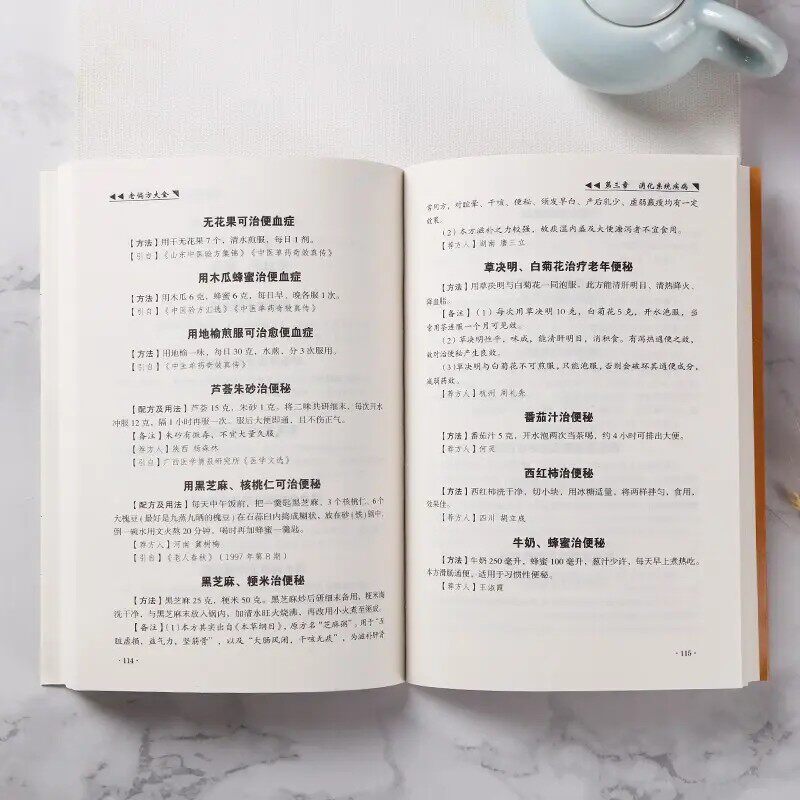 老偏方大全
无花果可治便血症
【方法】用干无花果7个，清水煎服，每日1剂。
【引自】《山东中医验方集锦》《中医单药奇效真传》
用木瓜蜂蜜治便血症
【方法】用木瓜6克，蜂蜜6克，每日早、晚各服1次。
【引自】《中医验方汇选》《中医单药奇效真传》
用地榆煎服可治愈便血症
【方法】用地榆一味，每日30克，水煎，分3次服用。
【引自】《中医单药奇效真传》
芦荟朱砂治便秘
【配方及用法】芦荟15克，朱砂1克。将二味共研细末，每次开水
冲服12克，隔1小时再服一次。服后大便即通，且不伤正气。
【备注】朱砂有微毒，不宜大量久服。
【荐方人】陕西 杨森林
【引自】广西医学情报研究所《医学文选》
用黑芝麻、核桃仁可治便秘
【配方及用法】每天中午饭前，把一匙黑芝麻、3个核桃仁、6个
大槐豆（最好是九蒸九晒的槐豆）在石蒜臼内捣成糊状，放在砂（铁）锅中，
到一碗水用文火熬20分钟，喝时再加蜂蜜一匙。
【荐方人】河南 冀树梅
【引自】《老人春秋》（1997年第8期）
黑芝麻、粳米治便秘
【方法】黑芝麻25克，粳米50克。黑芝麻炒后研细末备用，粳米淘
洗干净，与黑芝麻末放入锅内，加清水旺火烧沸，再改用小火煮至粥成。
【备注】（1）本方其实出自《本草纲目》，原方名“芝麻粥”，用于“五
脏虚损，益气力，坚筋骨”，以及“大肠风闭，干咳无痰”，为滋补肝肾
·114·
第三章 消化系统疾病
常用方，对眩晕、干咳、便秘、须发早白、产后乳少、虚弱羸瘦均有一定
效果。
（2）本方滋补之力较强，故痰湿内盛及大便溏泻者不宜食用。
【荐方人】湖南 唐三立
草决明、白菊花治疗老年便秘
【方法】用草决明与白菊花一同泡服。此方能清肝明目、清热降火、
降血脂。
【备注】（1）每次用草决明10克，白菊花5克，开水泡服，当
常用茶连服一个月可见效。
（2）草决明性平，味咸，能清肝明目，消积食。有泻热通便之效，
故对治便秘产生良效。
（3）草决明与白菊花不可煎服，只能泡服，否则会破坏其通便成分，
减弱药效。
【荐方人】杭州 周礼尧
番茄汁治便秘
【方法】番茄汁5克，开水泡两次当茶喝，约4小时可排出大便。
【荐方人】何灵
西红柿治便秘
【方法】西红柿洗干净，切小块，用冰糖适量，将两样拌匀，食用，
效果佳。
【荐方人】四川 胡立底
牛奶、蜂蜜治便秘
【方法】牛奶250毫升，蜂蜜100毫升，葱汁少许，每天早上煮热吃。
本方滑肠通便，适用于习惯性便秘。
【荐方人】王淑霞
·115·